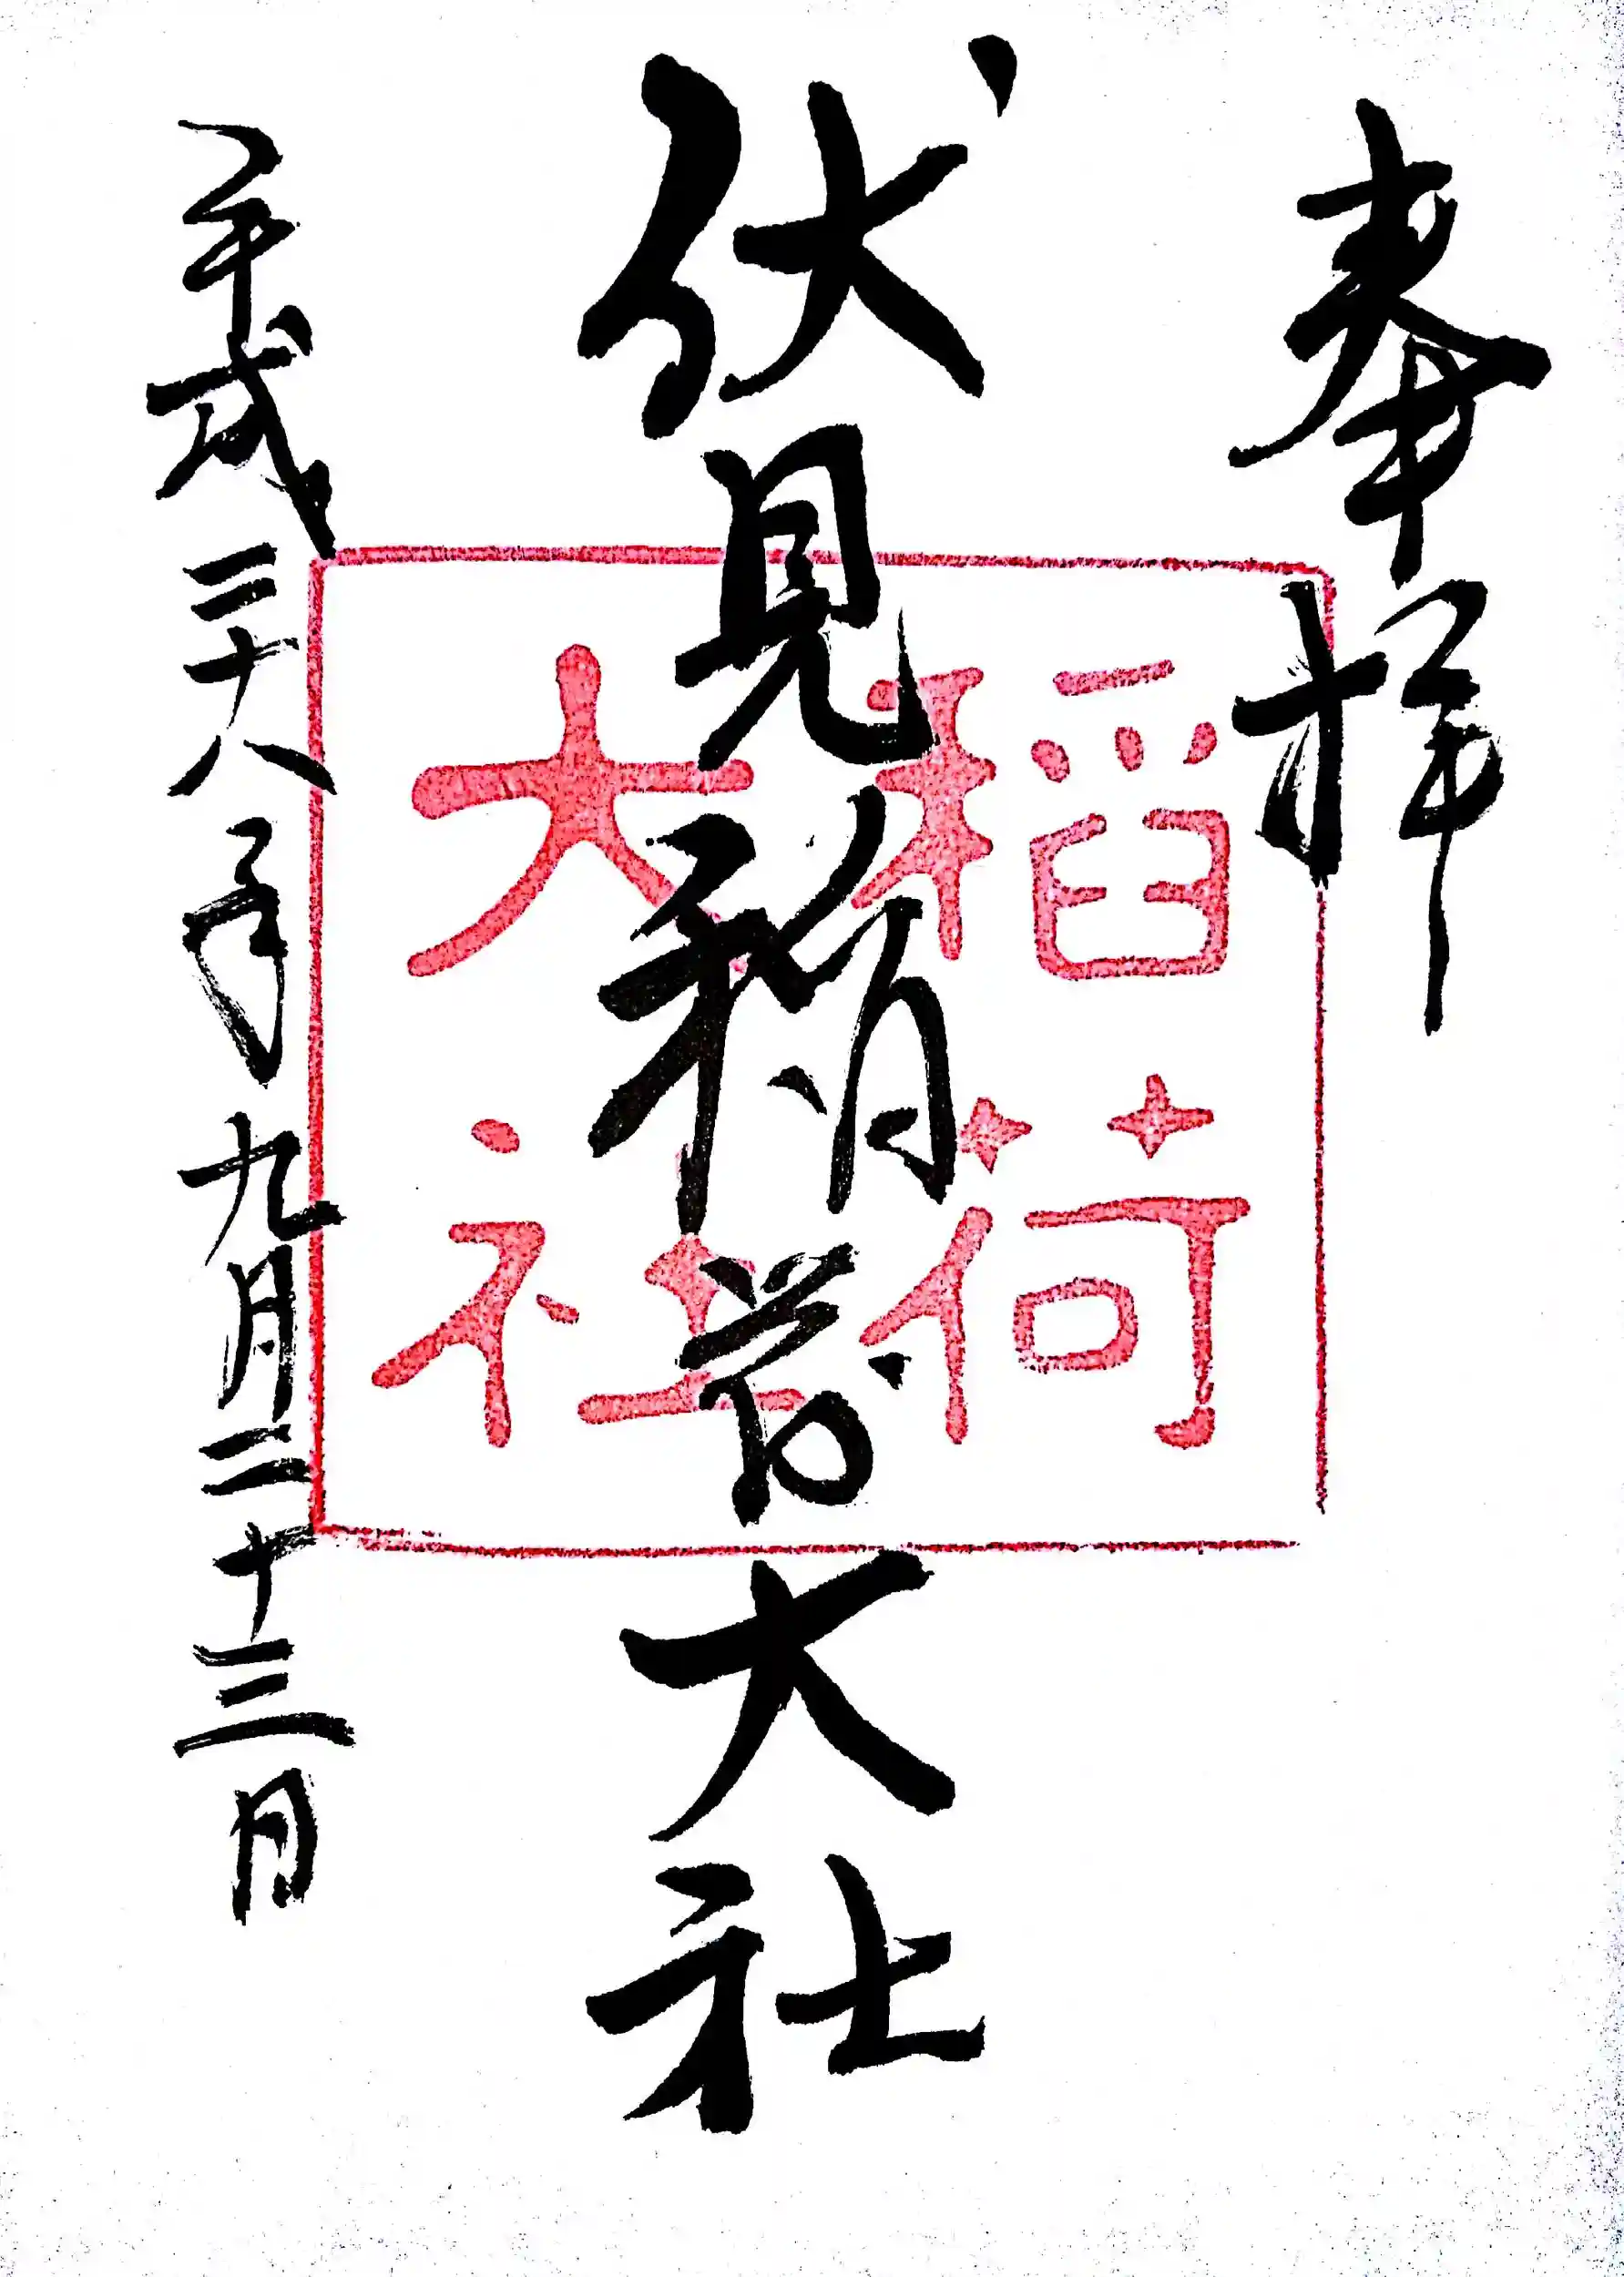 奉拝
伏見稲荷大社
平成二十八年九月二十三日
稻荷
大社